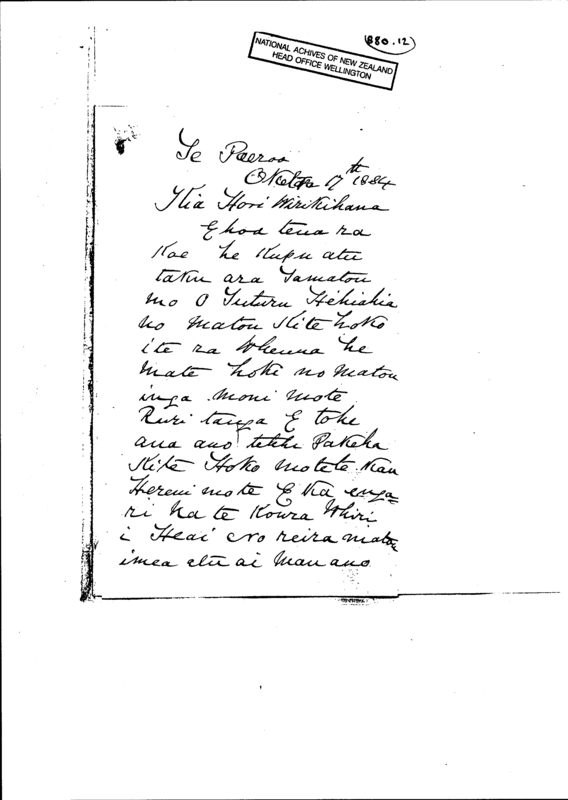 880.12
NATIONAL ACHIVES OF NEW ZEALAND
HEAD OFFICE WELLINGTON
Te Paeroa
17th 1884
Kia Hori Wirikihana
E hoa tena ra
Koe he Kupu atu
taku ara Tamatou
mo O Tuturu Hehiahia
no matou Kite hoko
ite ra Whenua he
mate hoki no Matou
inga moni mote
Ruri tanga E tohe
ana ano tetehi Pakeha
Kite Hoko motete Kau
Hereni mo te E Ka enga=
ri Na te Koura Whiri
i Heai no reira matou
imea atu ai Mau ano